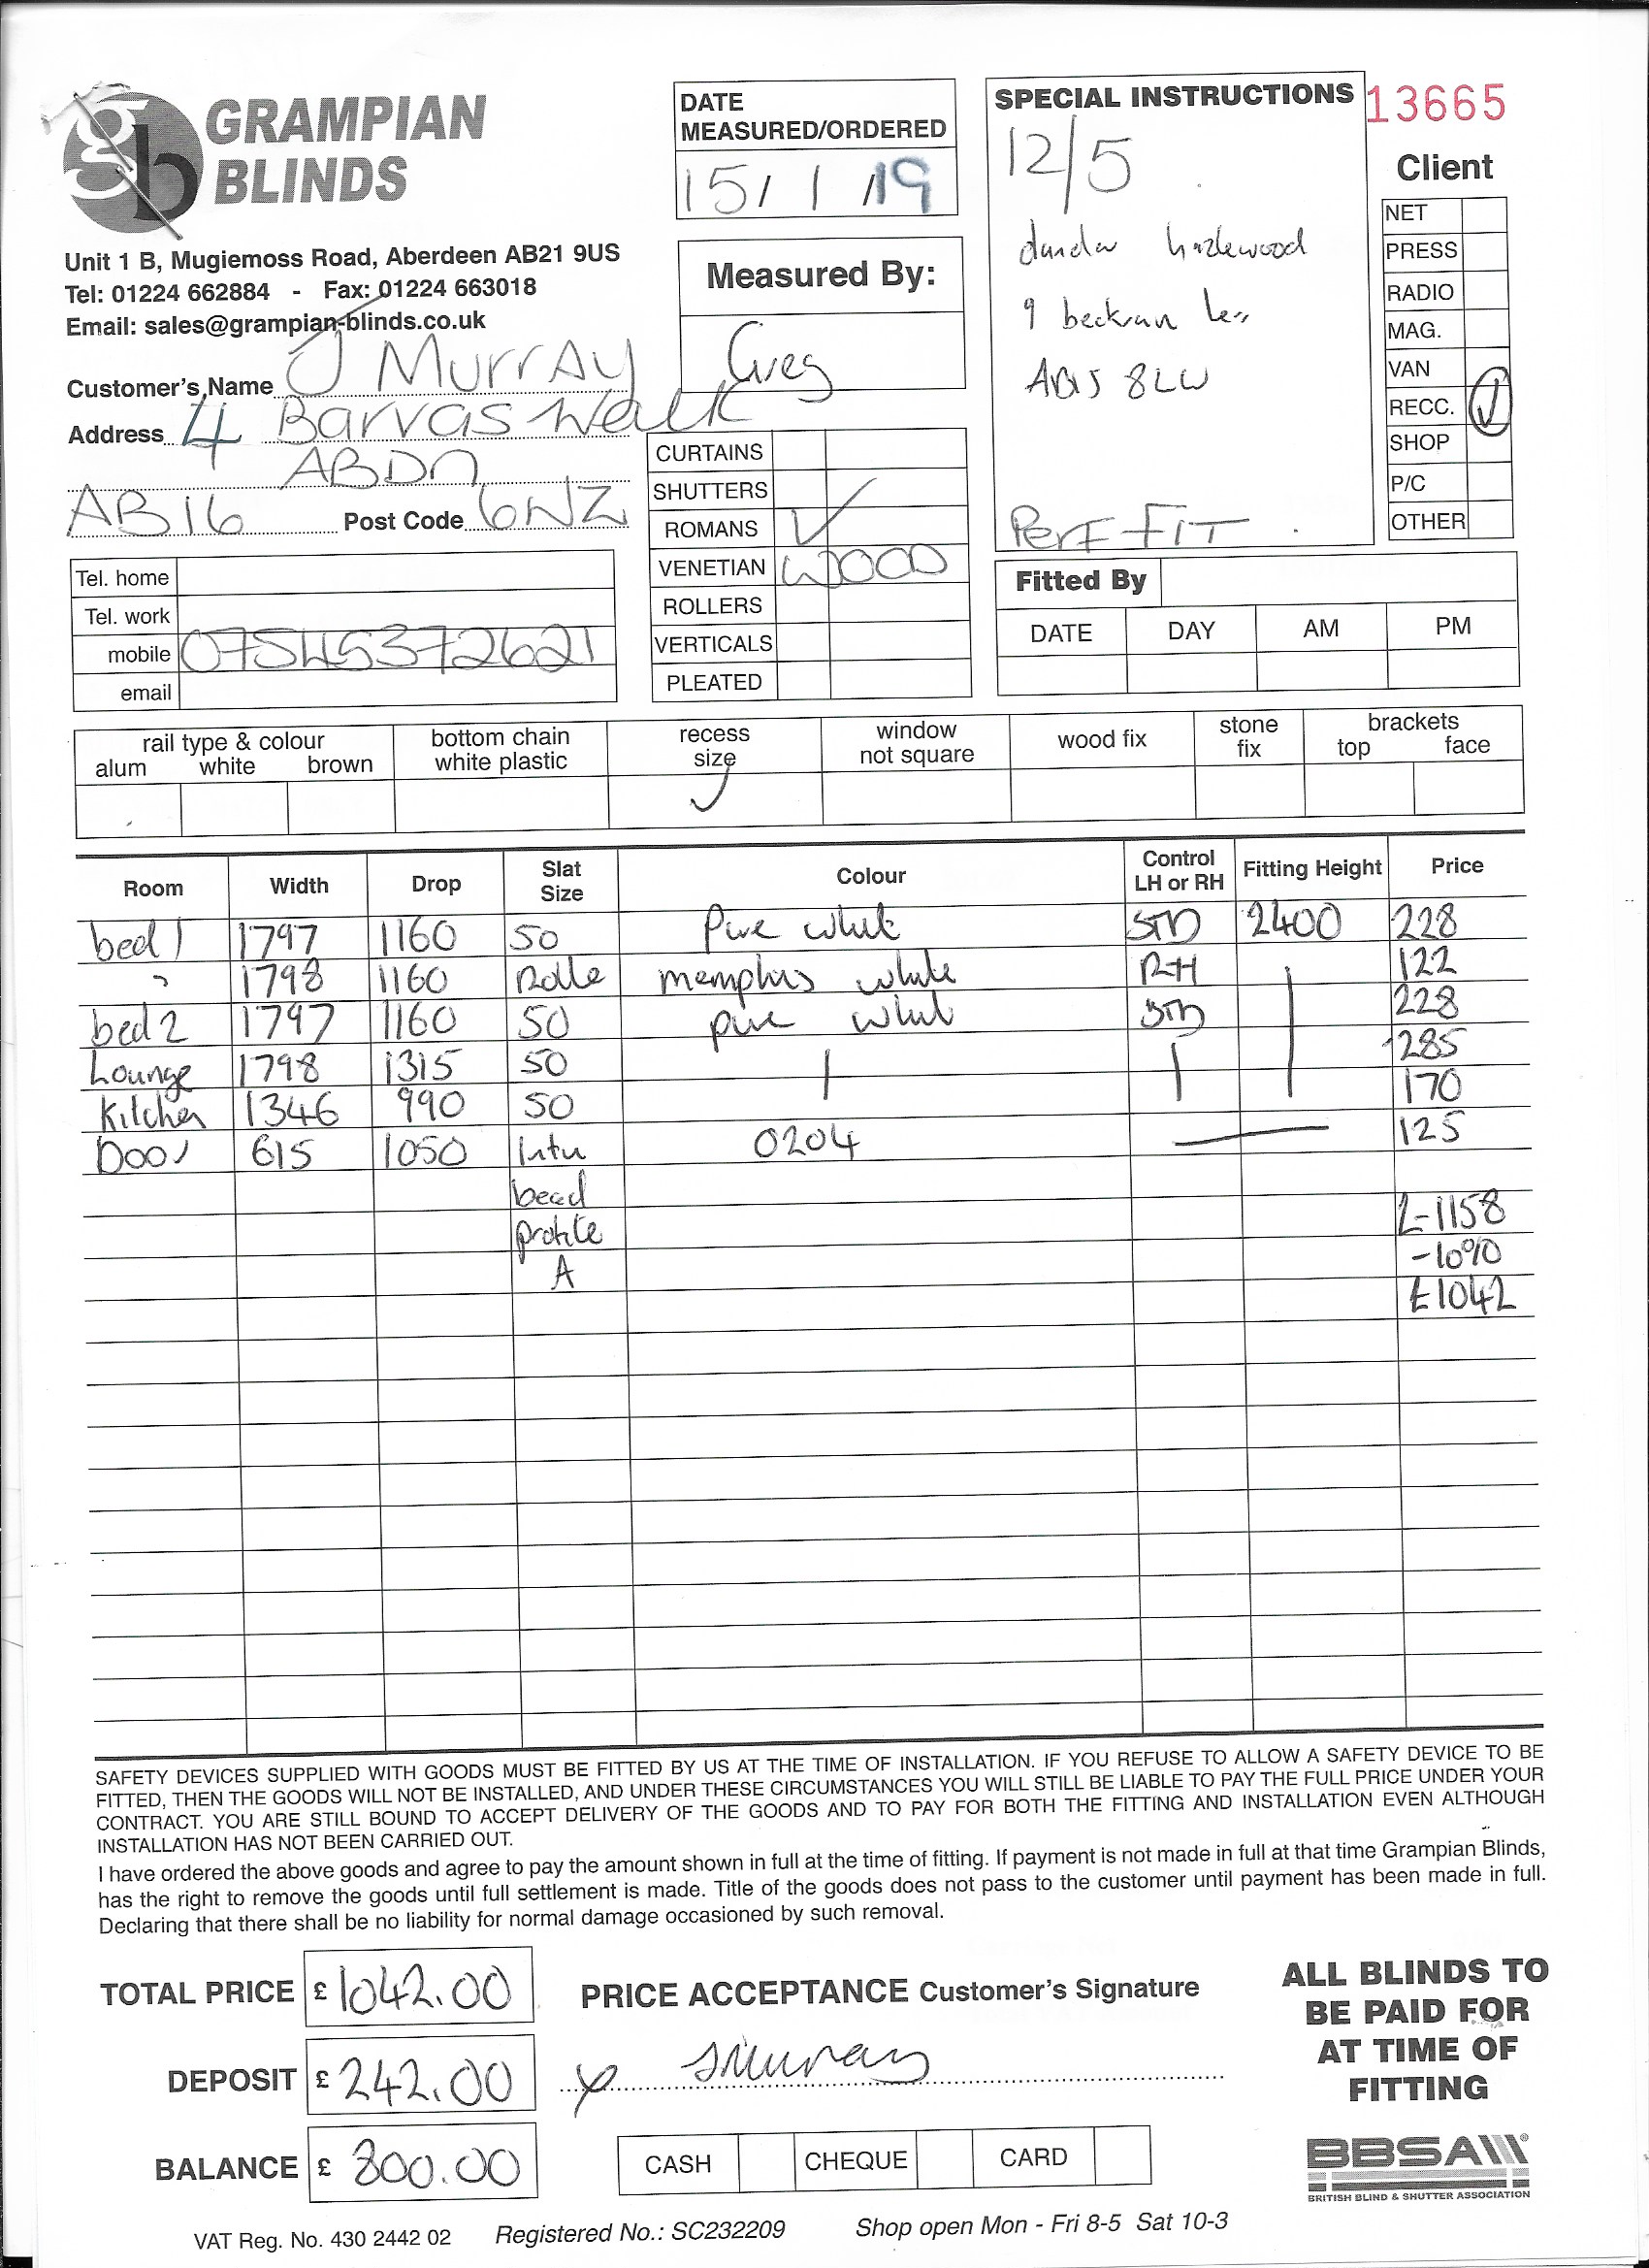 GRAMPIAN
BLINDS
Unit 1 B, Mugiemoss Road, Aberdeen AB21 9US
Tel: 01224 662884 - Fax: 01224 663018
Email: sales@grampian-blinds.co.uk
Customer's Name J Murray
Address 4 Barvas Walk
ABDN
AB16 Post Code 6NZ
Tel. home
Tel. work
mobile 07545372621
email
DATE
MEASURED/ORDERED
15/1/19
Measured By:
Greg
CURTAINS
SHUTTERS
ROMANS
VENETIAN WOOD
ROLLERS
VERTICALS
PLEATED
SPECIAL INSTRUCTIONS
12/5
dandar hazlewood
9
AB15 8LW
Perf FIT
13665
Client
NET
PRESS
RADIO
MAG.
VAN
RECC.
SHOP
P/C
OTHER
Fitted By
DATE DAY AM PM
rail type & colour
alum white brown
bottom chain
white plastic
recess
size
window
not square
wood fix
stone
fix
brackets
top face
Room Width Drop Slat Size Colour Control LH or RH Fitting Height Price
bed 1 1797 1160 50 Pure white STD 2400 228
" 1798 1160 Rolle memphis white RH 122
bed 2 1797 1160 50 pure white STD 228
Lounge 1798 1315 50 285
Kitchen 1346 990 50 170
Door 615 1050 Intu 0204 125
bead
profile £1158
A -10%
£1042
SAFETY DEVICES SUPPLIED WITH GOODS MUST BE FITTED BY US AT THE TIME OF INSTALLATION. IF YOU REFUSE TO ALLOW A SAFETY DEVICE TO BE
FITTED, THEN THE GOODS WILL NOT BE INSTALLED, AND UNDER THESE CIRCUMSTANCES YOU WILL STILL BE LIABLE TO PAY THE FULL PRICE UNDER YOUR
CONTRACT. YOU ARE STILL BOUND TO ACCEPT DELIVERY OF THE GOODS AND TO PAY FOR BOTH THE FITTING AND INSTALLATION EVEN ALTHOUGH
INSTALLATION HAS NOT BEEN CARRIED OUT.
I have ordered the above goods and agree to pay the amount shown in full at the time of fitting. If payment is not made in full at that time Grampian Blinds,
has the right to remove the goods until full settlement is made. Title of the goods does not pass to the customer until payment has been made in full.
Declaring that there shall be no liability for normal damage occasioned by such removal.
TOTAL PRICE £ 1042.00
DEPOSIT £ 242.00
BALANCE £ 800.00
PRICE ACCEPTANCE Customer's Signature
x JMurray
CASH CHEQUE CARD
ALL BLINDS TO
BE PAID FOR
AT TIME OF
FITTING
BBSA
BRITISH BLIND & SHUTTER ASSOCIATION
VAT Reg. No. 430 2442 02 Registered No.: SC232209 Shop open Mon - Fri 8-5 Sat 10-3